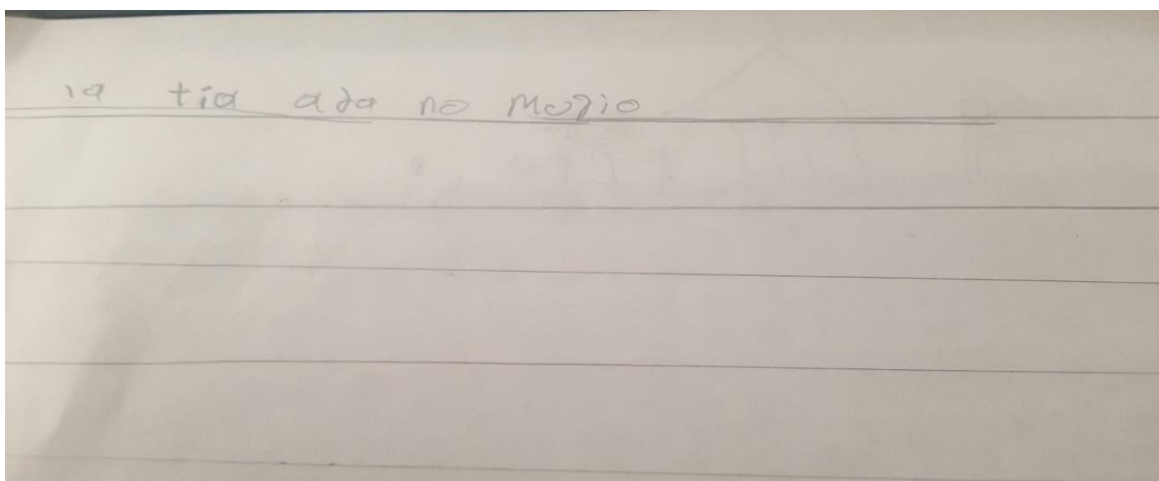 la tía ada no morio